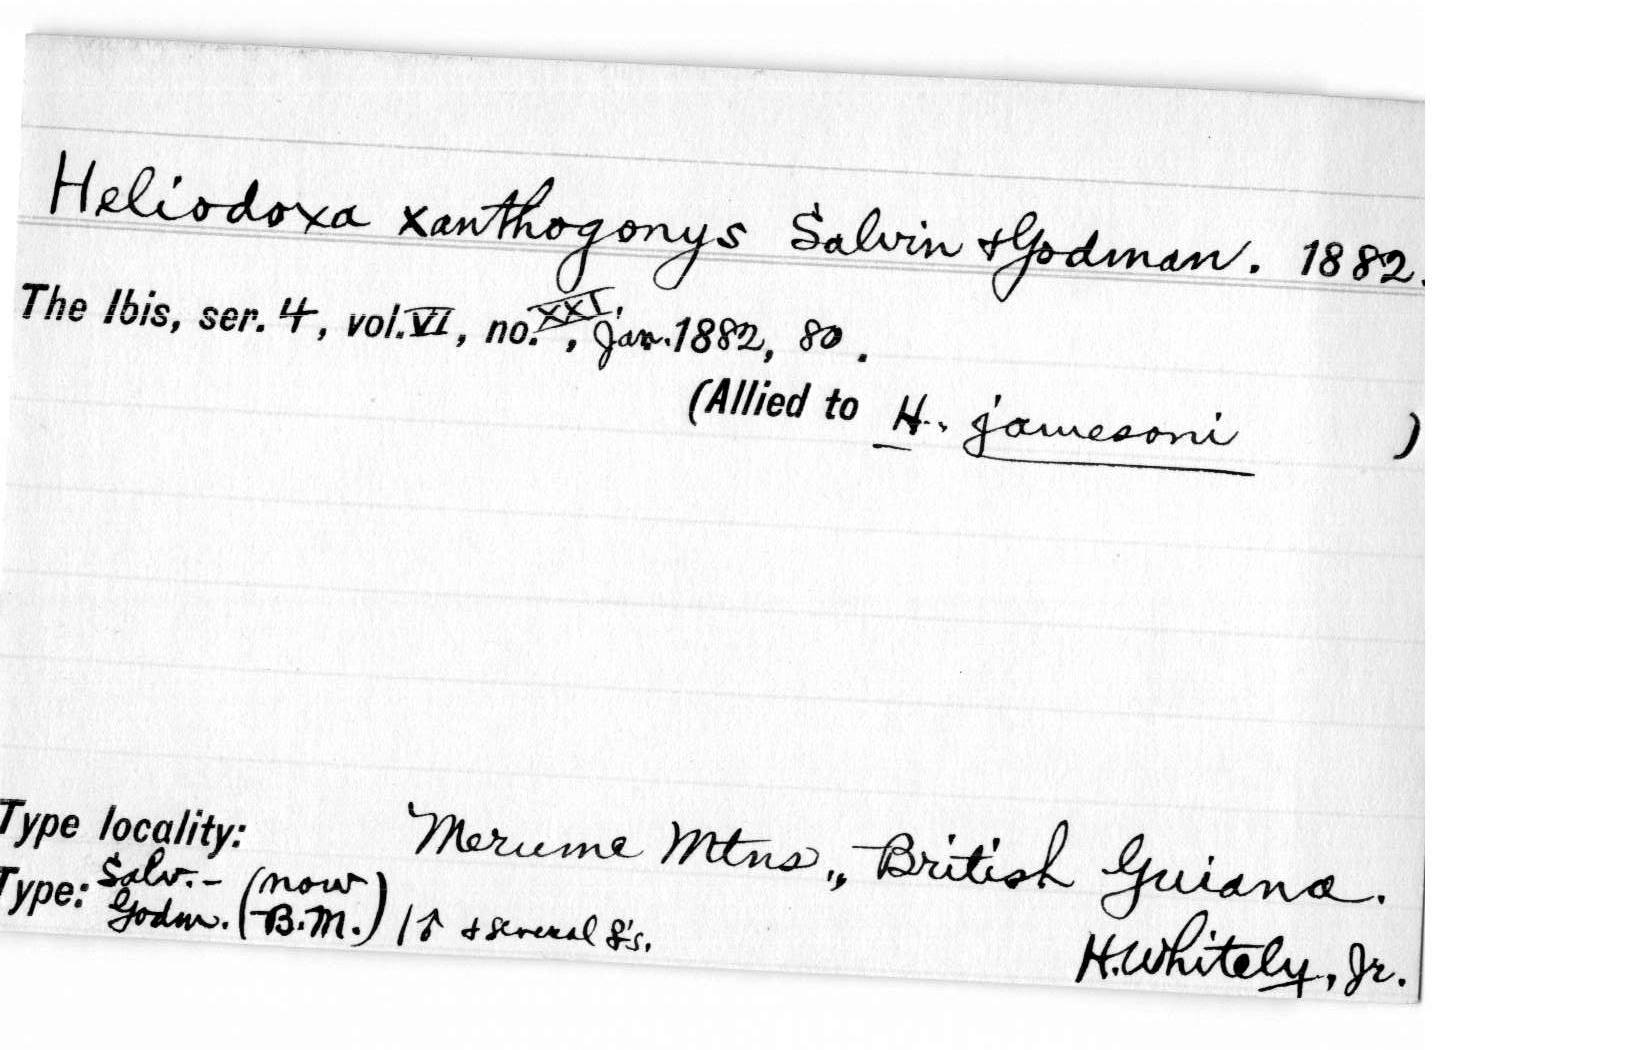 Heliodoxa xanthogonys Salvin & Godman. 1882.
The Ibis, ser. 4, vol. VI, no. XXI, Jan. 1882, 80.
(Allied to H. jamesoni )
Type locality: Merume Mtns., British Guiana.
Type: Salv.-Godm. (now B.M.) 1 & several
H. Whitely, Jr.